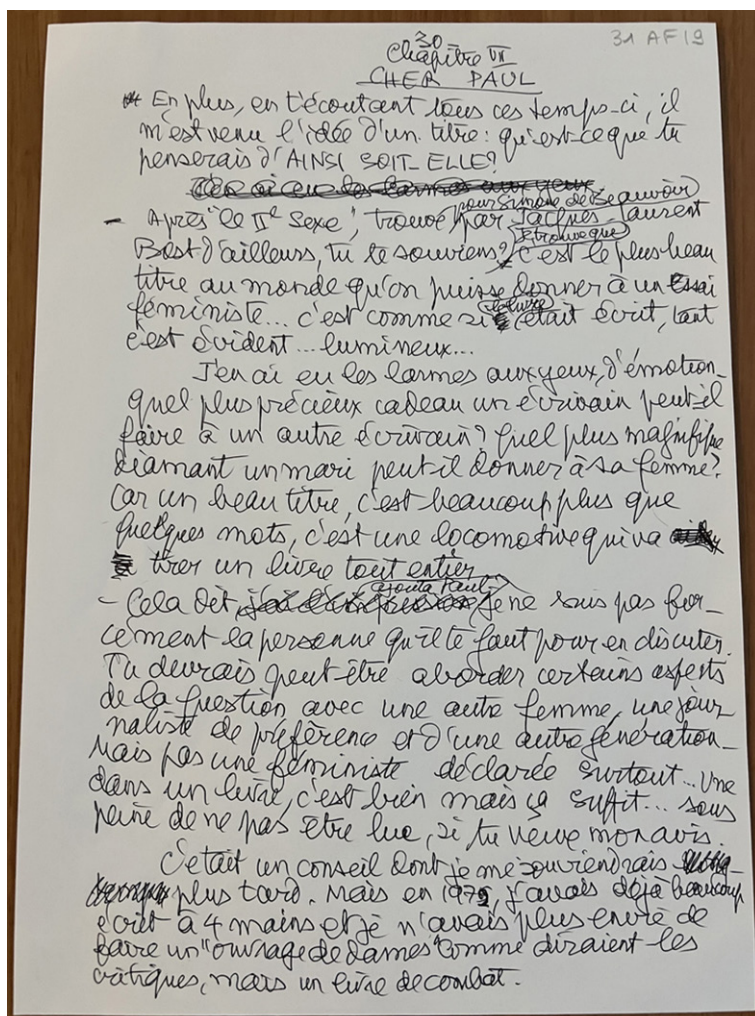 31 AF 19
30
Chapitre VII
CHER PAUL
En plus, en t'écoutant tous ces temps-ci, il
m'est venu l'idée d'un titre : qu'est-ce que tu
penserais d'AINSI SOIT-ELLE?
J'en ai eu les larmes aux yeux
pour Simone de Beauvoir
- Après "le IIe Sexe", trouvé par Jacques-Laurent
Bost d'ailleurs, tu te souviens? Je trouve que c'est le plus beau
titre au monde qu'on puisse donner à un Essai
féministe... c'est comme si le livre était écrit, tant
c'est évident... lumineux...
J'en ai eu les larmes aux yeux, d'émotion-
quel plus précieux cadeau un écrivain peut-il
faire à un autre écrivain? Quel plus magnifique
diamant un mari peut-il donner à sa femme?
Car un beau titre, c'est beaucoup plus que
quelques mots, c'est une locomotive qui va
tirer un livre tout entier
ajouta Paul-
- Cela dit, je ne suis pas for-
cément la personne qu'il te faut pour en discuter.
Tu devrais peut-être aborder certains aspects
de la question avec une autre femme, une jour-
naliste de préférence et d'une autre génération-
Mais pas une féministe déclarée surtout... Une
dans un livre, c'est bien mais ça suffit... sous
peine de ne pas être lue, si tu veux mon avis.
C'était un conseil dont je me souviendrais
plus tard. Mais en 1972, j'avais déjà beaucoup
écrit à 4 mains et je n'avais plus envie de
faire un "ouvrage de dames" comme diraient les
critiques, mais un livre de combat.